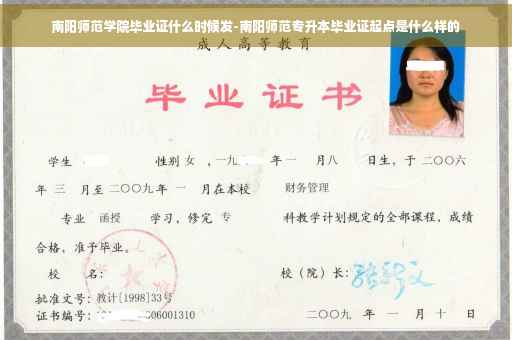 南阳师范学院毕业证什么时候发-南阳师范专升本毕业证起点是什么样的
成人高等教育
毕业证书
学生 性别 女 ，一九 年 一 月八 日生，于 二〇〇六
年 三 月至 二〇〇九 年 一 月在本校 财务管理
专业 函授 学习，修完 专 科教学计划规定的全部课程，成绩
合格，准予毕业。
校 名： 校（院）长：
批准文号：教计[1998]33号
证书编号： 06001310 二〇〇九 年 一 月 十 日